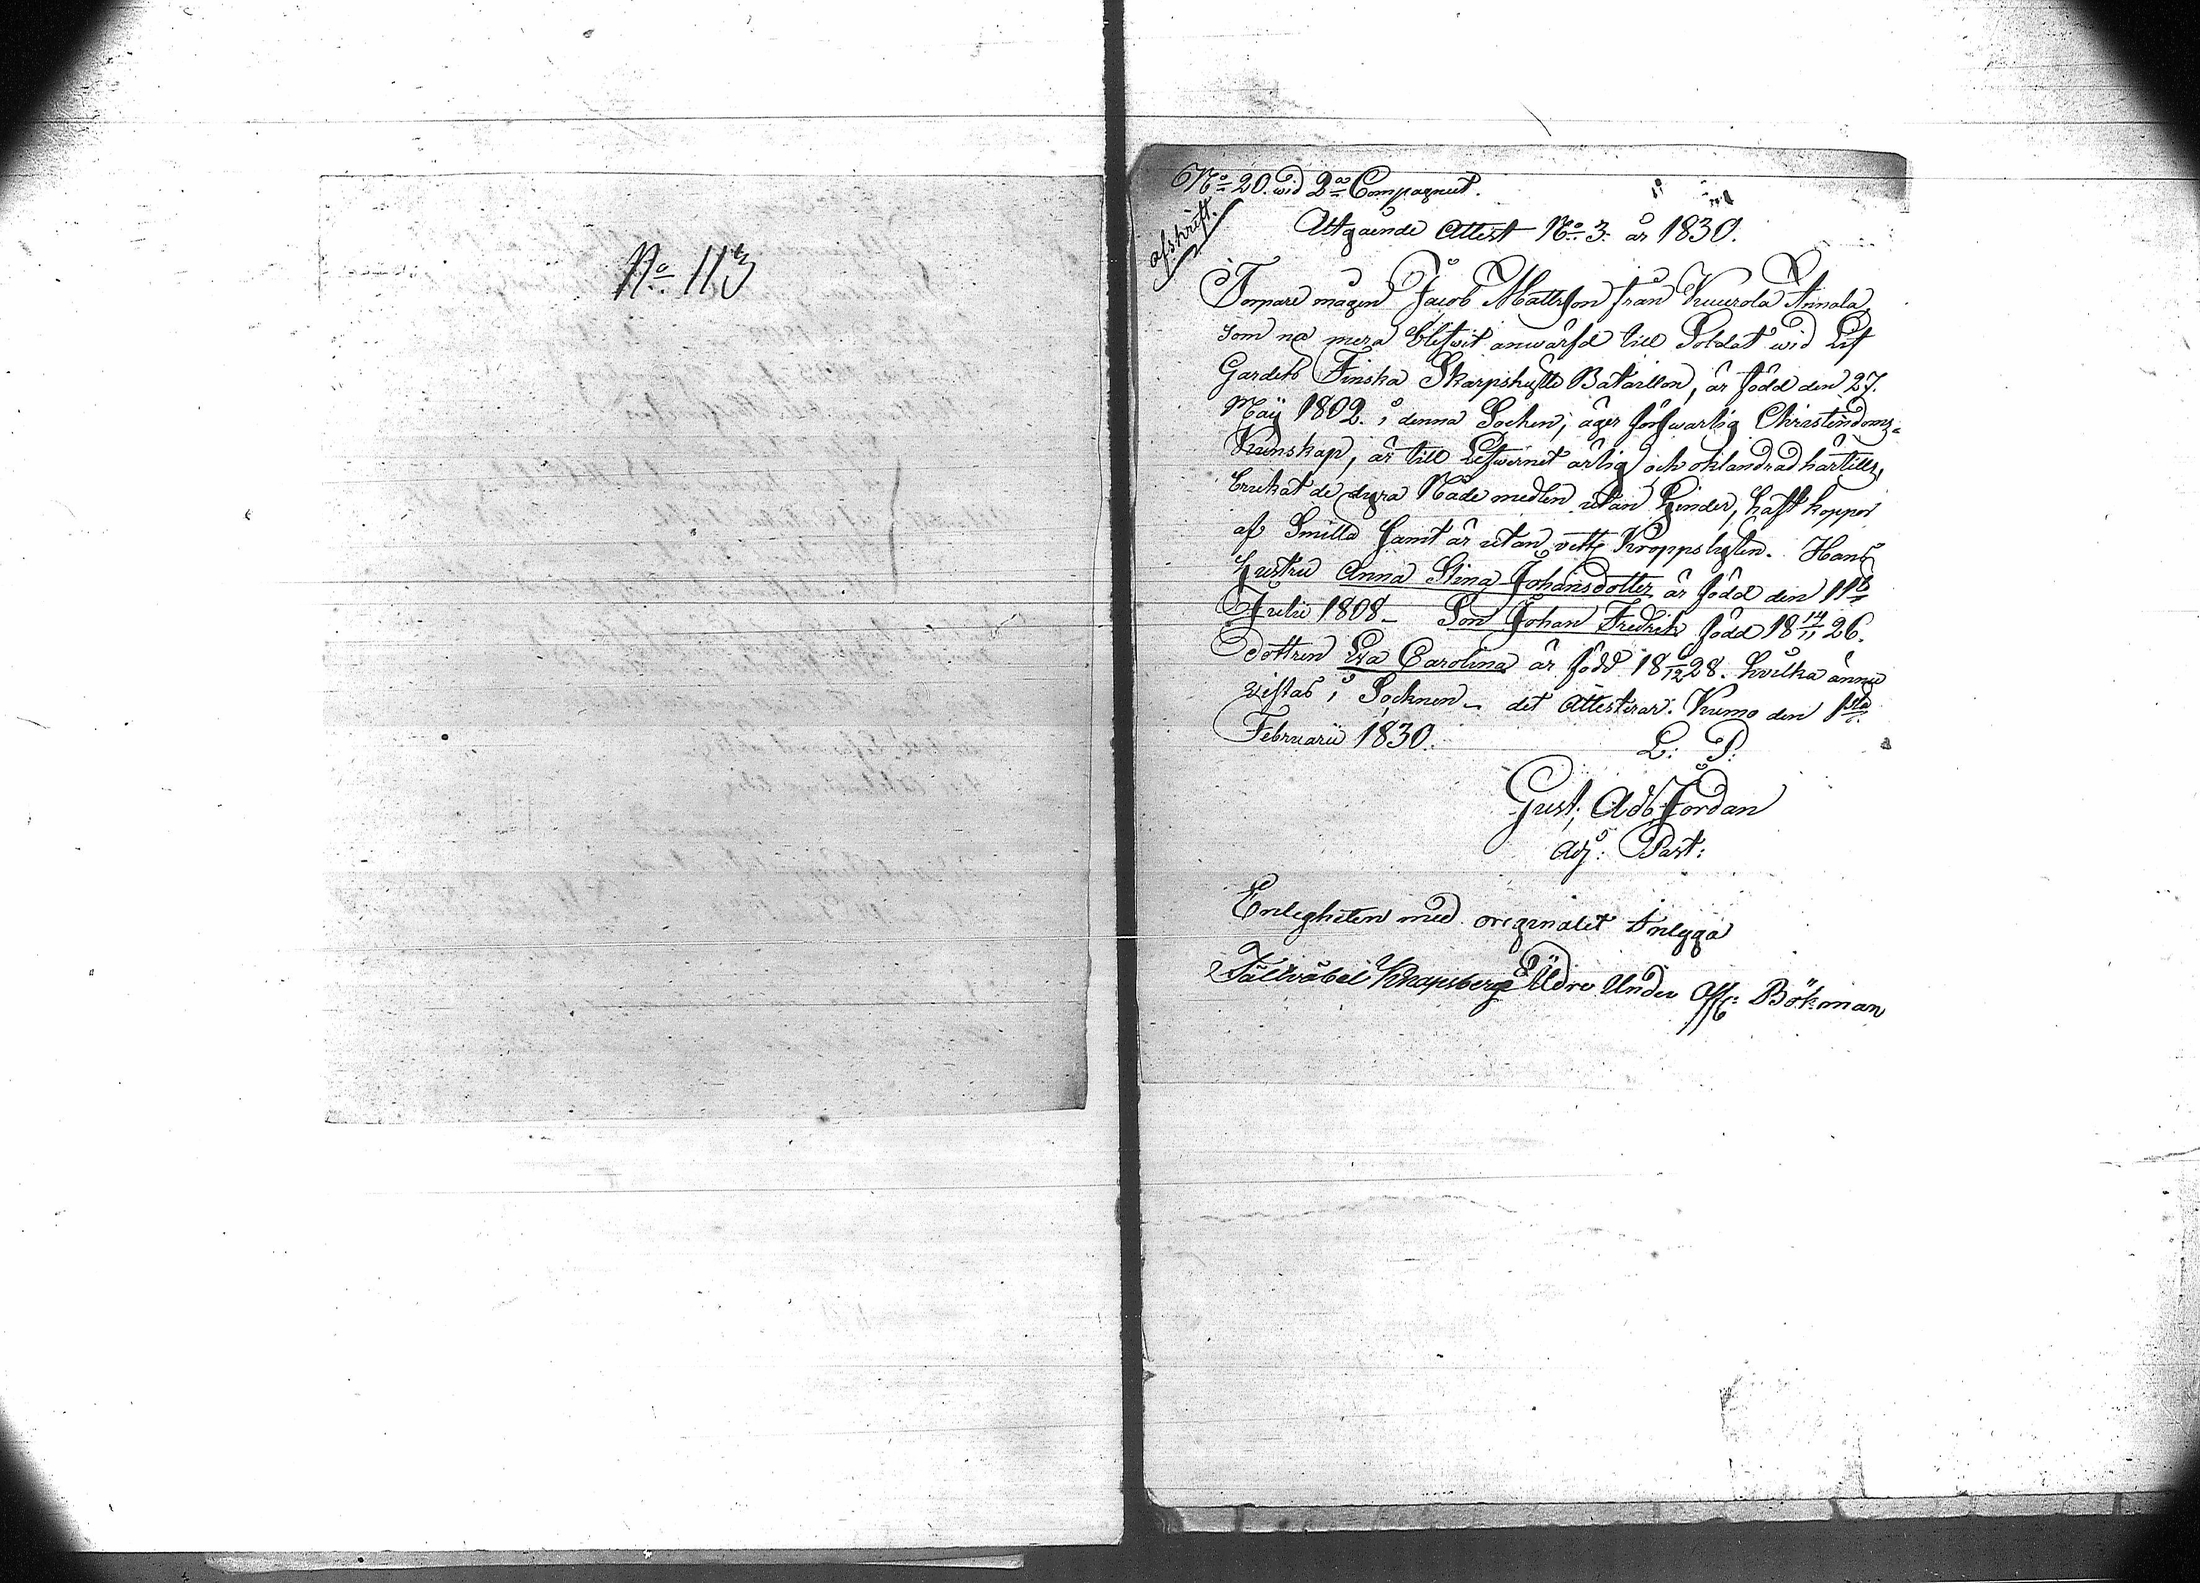 No 113
No 20. wid 2a Compagniet.
afskrift.
Utgående Attest No 3. år 1830.
Torpare mågen Jacob Mattsson från Kuurola Annala,
som nu mera blifwit anwärfd till Soldat wid Lif
Gardets Finska Skarpskytte Bataillon, är född den 27.
Maÿ 1802. i denna Sochen, äger försvarlig Christendoms=
Kunskap, är till Lefwernet ärlig och oklandrad härtills,
brukat de dyra Nåde medlen utan hinder, haft koppor
af Smitta samt är utan vitt Kroppslyten. Hans
hustru Anna Stina Johansdotter är född den 11te
Julii 1808 – Son Johan Fredrik född 18 14/11 26.
Dottren Eva Carolina är född 18 /12 28. hvilka ännu
vistas i Socknen – det Attesterar. Kumo den 1sta
Februarii 1830.
L. P.
Gust. Ad. Jordan
Adj: Past:
Enlegheten med originalet intyga
Fältväbel Knapsberg Äldre Under Off: Bökman